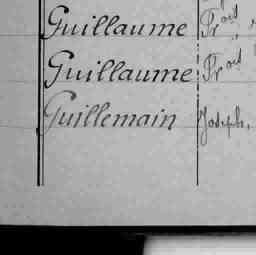 Guillaume
Guillaume
Guillemain Joseph,